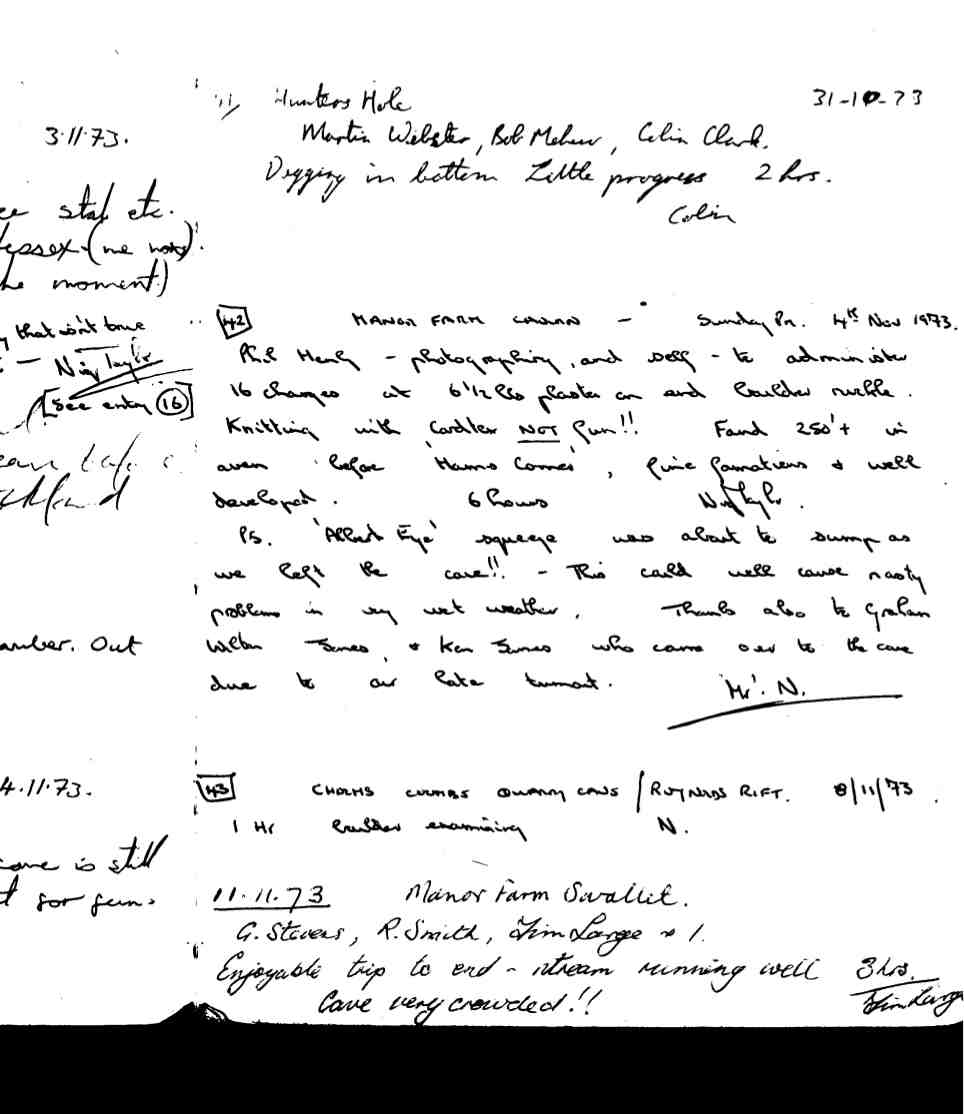 3.11.73.
stal etc.
(me
moment)
that isn't true
- Nig Taylor
[See entry 16]
Out
4.11.73.
is still
for fun.
Hunters Hole 31-10-73
Martin Webster, Bob Mehew, Colin Clark.
Digging in bottom Little progress 2 hrs.
Colin
42 MANOR FARM CAVERN - Sunday Pm. 4th Nov 1973.
Phil Hendy - photographing, and self - to administer
16 charges at 6 1/2 lbs plaster on and boulder ruckle.
Knitting with Cordtex NOT fun!! Found 250'+ in
aven before 'Nurno Comes', fine formations & well
developed. 6 hours N. Taylor.
PS. 'Albert Eye' squeeze was about to sump as
we left the cave!! - This could well cause nasty
problems in very wet weather. Thanks also to Graham
Wilton Jones, & Ken James who came over to the cave
due to our late turnout. 'Mr'. N.
43 QUARRY CAVES / REYNOLDS RIFT. 8/11/73.
1 Hr boulder examining N.
11.11.73 Manor Farm Swallet.
G. Stevens, R. Smith, Tim Large + 1.
Enjoyable trip to end - stream running well 3 hrs.
Cave very crowded!! Tim Large